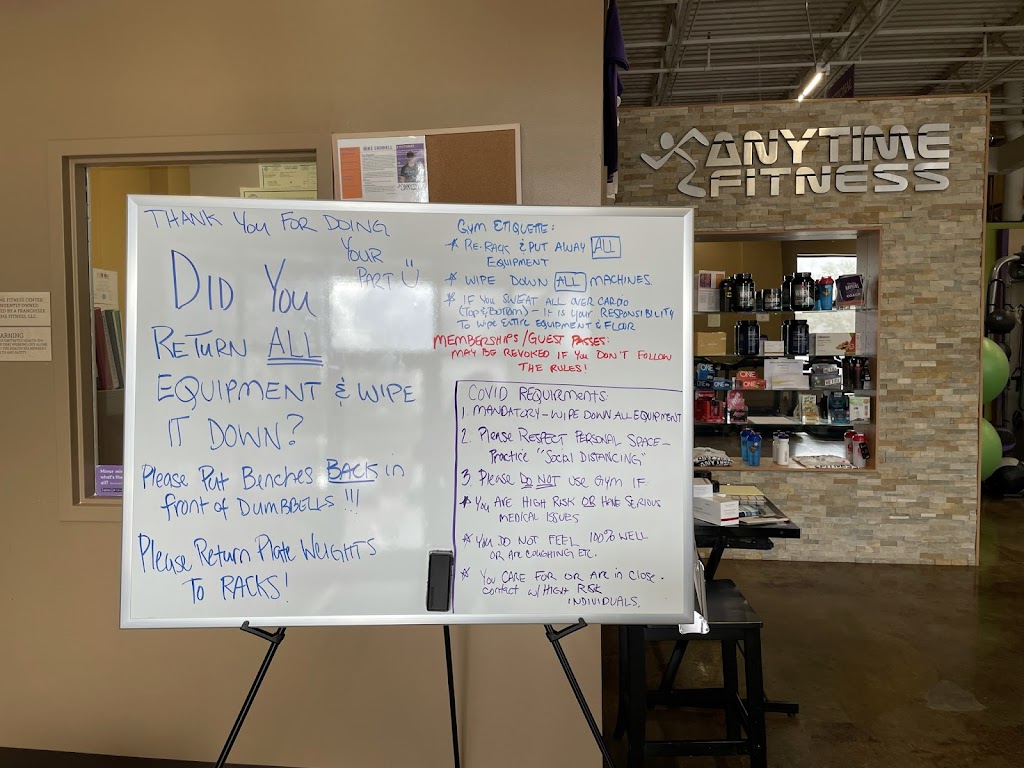 THANK YOU FOR DOING
YOUR
PART
DID YOU
RETURN ALL
EQUIPMENT & WIPE
IT DOWN?
Please Put Benches BACK in
front of DUMBBELLS !!!
Please Return Plate WEIGHTS
To RACKS!
GYM ETIQUETTE:
* RE-RACK & PUT AWAY ALL
EQUIPMENT
* WIPE DOWN ALL MACHINES.
* IF YOU SWEAT ALL OVER CARDIO
(Top & Bottom) - IT IS YOUR RESPONSIBILITY
TO WIPE ENTIRE EQUIPMENT & FLOOR
MEMBERSHIPS/GUEST PASSES:
MAY BE REVOKED IF YOU DON'T FOLLOW
THE RULES!
COVID REQUIRMENTS:
1. MANDATORY - WIPE DOWN ALL EQUIPMENT
2. Please RESPECT PERSONAL SPACE -
Practice "Social DISTANCING"
3. Please DO NOT USE GYM IF:
* YOU ARE HIGH RISK OR HAVE SERIOUS
MEDICAL ISSUES
* YOU DO NOT FEEL 100% WELL
OR ARE COUGHING ETC.
* YOU CARE FOR OR ARE in CLOSE
CONTACT w/ HIGH RISK
INDIVIDUALS.
ANYTIME
FITNESS
ONE
ONE